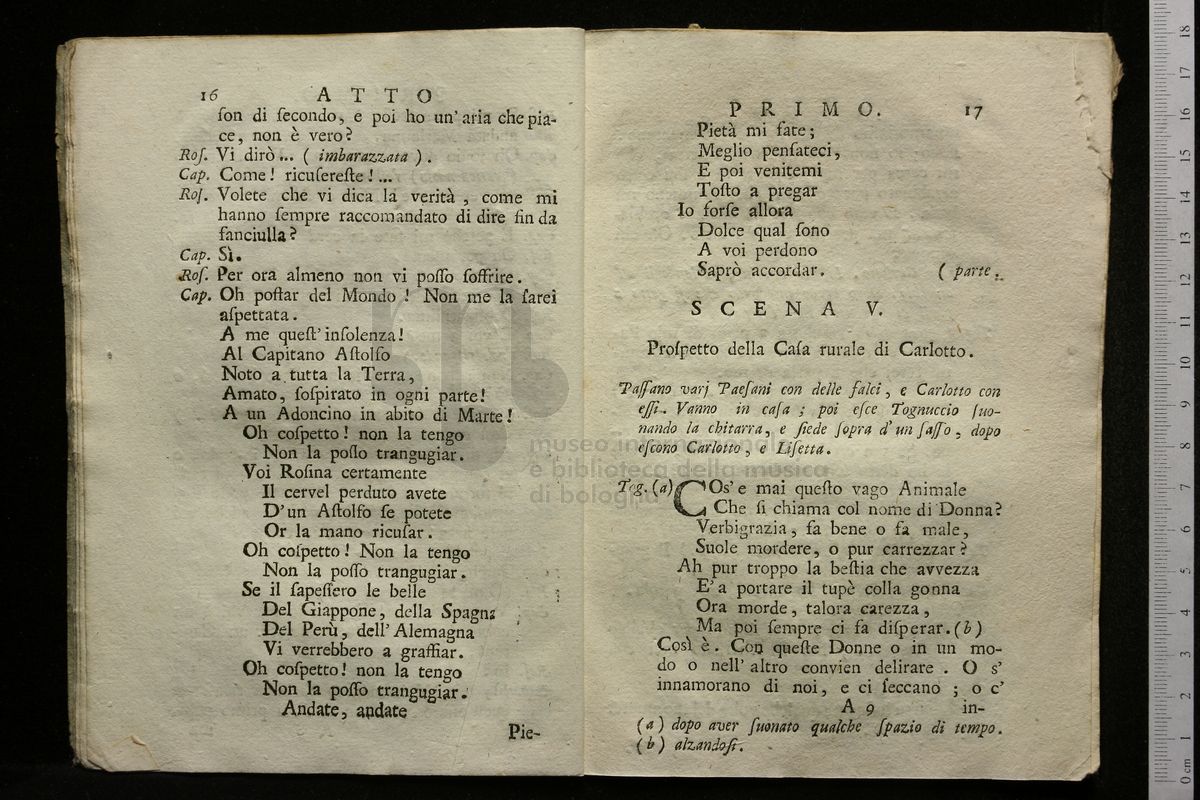 16 A T T O
ſon di ſecondo, e poi ho un' aria che pia-
ce, non è vero?
Roſ. Vi dirò... ( imbarazzata ) .
Cap. Come! ricuſereſte!...
Roſ. Volete che vi dica la verità , come mi
hanno ſempre raccomandato di dire fin da
fanciulla?
Cap. Sì.
Roſ. Per ora almeno non vi poſſo ſoffrire.
Cap. Oh poſtar del Mondo! Non me la ſarei
aſpettata.
A me queſt' inſolenza!
Al Capitano Aſtolfo
Noto a tutta la Terra,
Amato, ſoſpirato in ogni parte!
A un Adoncino in abito di Marte!
Oh coſpetto! non la tengo
Non la poſſo trangugiar.
Voi Roſina certamente
Il cervel perduto avete
D'un Aſtolfo ſe potete
Or la mano ricuſar.
Oh coſpetto! Non la tengo
Non la poſſo trangugiar.
Se il ſapeſſero le belle
Del Giappone, della Spagna
Del Perù, dell' Alemagna
Vi verrebbero a graffiar.
Oh coſpetto! non la tengo
Non la poſſo trangugiar.
Andate, andate
Pie-
P R I M O. 17
Pietà mi fate;
Meglio penſateci,
E poi venitemi
Toſto a pregar
Io forſe allora
Dolce qual ſono
A voi perdono
Saprò accordar. ( parte.
S C E N A V.
Proſpetto della Caſa rurale di Carlotto.
Paſſano varj Paeſani con delle falci, e Carlotto con
eſſi. Vanno in caſa ; poi eſce Tognuccio ſuo-
nando la chitarra, e ſiede ſopra d'un ſaſſo, dopo
eſcono Carlotto, e Liſetta.
Tog. (a) COs' e mai queſto vago Animale
Che ſi chiama col nome di Donna?
Verbigrazia, fa bene o fa male,
Suole mordere, o pur carrezzar?
Ah pur troppo la beſtia che avvezza
E' a portare il tupè colla gonna
Ora morde, talora carezza,
Ma poi ſempre ci fa diſperar. (b)
Così è. Con queſte Donne o in un mo-
do o nell' altro convien delirare . O s'
innamorano di noi, e ci ſeccano ; o c'
A 9 in-
(a) dopo aver ſuonato qualche ſpazio di tempo.
(b) alzandoſi.
museo internazionale
e biblioteca della musica
di bologna
0 cm 1 2 3 4 5 6 7 8 9 10 11 12 13 14 15 16 17 18